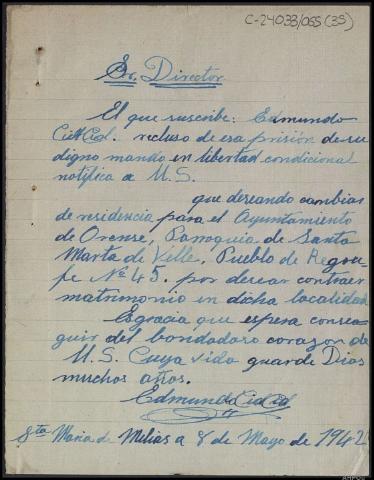 C-24033/055 (35)
Sr. Director
El que suscribe: Edmundo
Cid Cid. recluso de esa prisión de su
digno mando en libertad condicional
notifica a U.S.
que deseando cambiar
de residencia para el Ayuntamiento
de Orense, Parroquia de Santa
Marta de Velle, Pueblo de Regou-
fe Nº 45. por desear contraer
matrimonio en dicha localidad
Es gracia que espera conse-
guir del bondadoso corazon de
U.S. Cuya vida guarde Dios
muchos años.
Edmundo Cid Cid
Sta Maria de Melias a 8 de Mayo de 1942